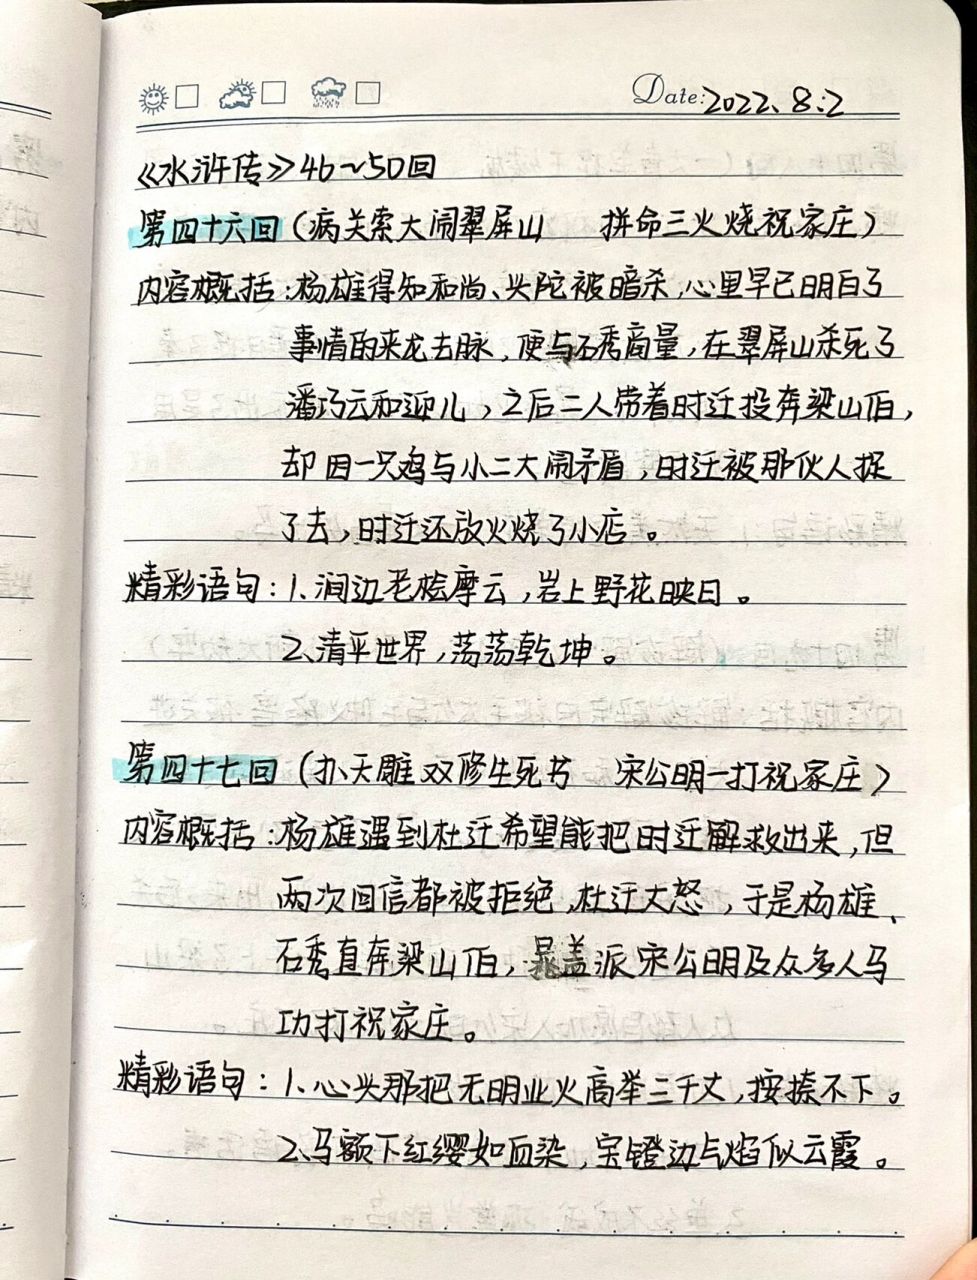 Date: 2022.8.2
《水浒传》46~50回
第四十六回(病关索大闹翠屏山 拼命三火烧祝家庄)
内容概括:杨雄得知和尚、头陀被暗杀,心里早已明白了
事情的来龙去脉,便与石秀商量,在翠屏山杀死了
潘巧云和迎儿,之后二人带着时迁投奔梁山伯,
却因一只鸡与小二大闹矛盾,时迁被那伙人捉
了去,时迁还放火烧了小店。
精彩语句:1.涧边老桧摩云,岩上野花映日。
2.清平世界,荡荡乾坤。
第四十七回(扑天雕双修生死书 宋公明一打祝家庄)
内容概括:杨雄遇到杜迁希望能把时迁解救出来,但
两次回信都被拒绝,杜迁大怒,于是杨雄、
石秀直奔梁山伯,晁盖派宋公明及众多人马
功打祝家庄。
精彩语句:1.心头那把无明业火高举三千丈,按捺不下。
2.马额下红缨如血染,宝镫边气焰似云霞。